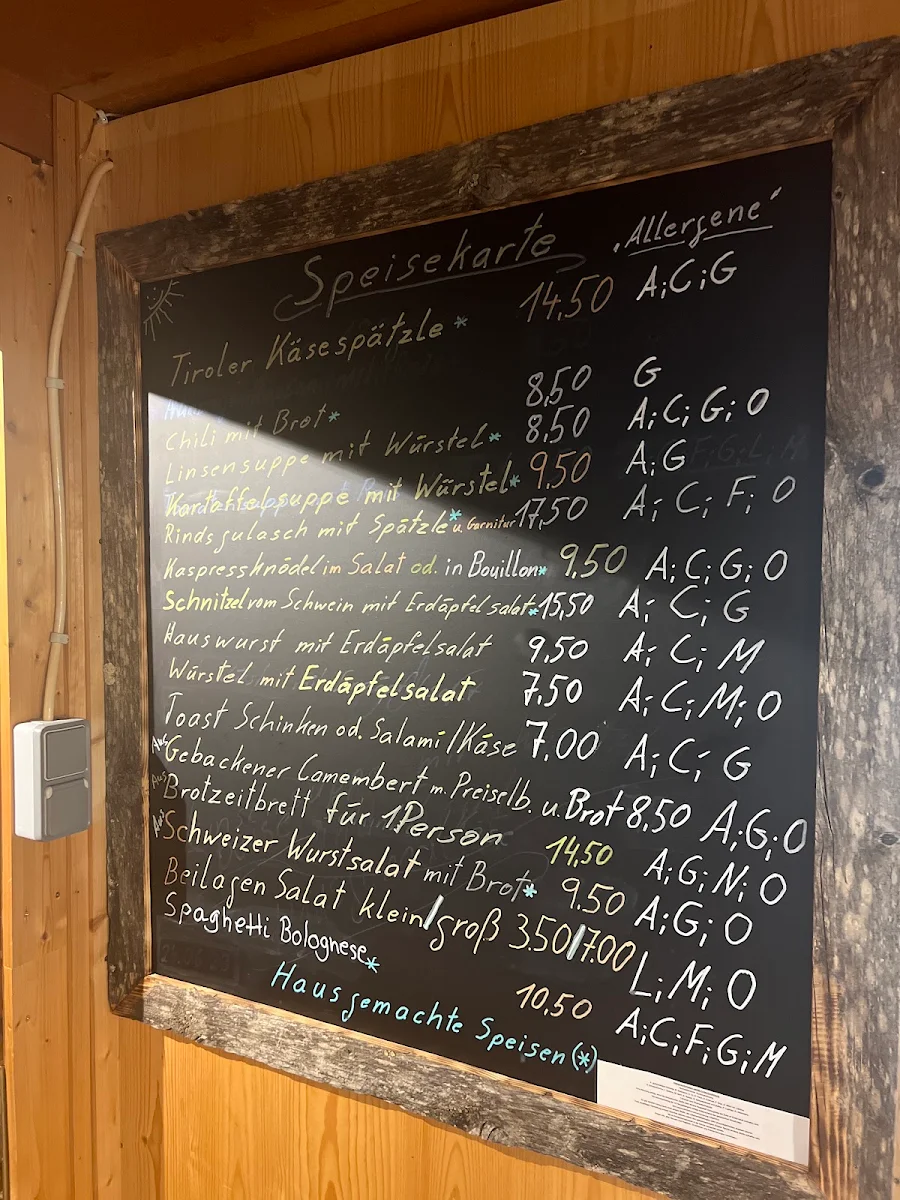 Speisekarte „Allergene"
Tiroler Käsespätzle * 14,50 A;C;G
Chili mit Brot* 8,50 G
Linsensuppe mit Würstel* 8,50 A;C;G;O
Kartoffelsuppe mit Würstel* 9,50 A;G
Rindsgulasch mit Spätzle* u. Garnitur 17,50 A;C;F;O
Kaspressknödel im Salat od. in Bouillon* 9,50 A;C;G;O
Schnitzel vom Schwein mit Erdäpfelsalat* 15,50 A;C;G
Hauswurst mit Erdäpfelsalat 9,50 A;C;M
Würstel mit Erdäpfelsalat 7,50 A;C;M;O
Toast Schinken od. Salami/Käse 7.00 A;C;G
Aus Gebackener Camembert m. Preiselb. u. Brot 8,50 A;G;O
Aus Brotzeitbrett für 1 Person 14,50 A;G;N;O
Aus Schweizer Wurstsalat mit Brot* 9.50 A;G;O
Beilagen Salat klein/groß 3.50/7.00 L;M;O
Spaghetti Bolognese* 10,50 A;C;F;G;M
Hausgemachte Speisen (*)